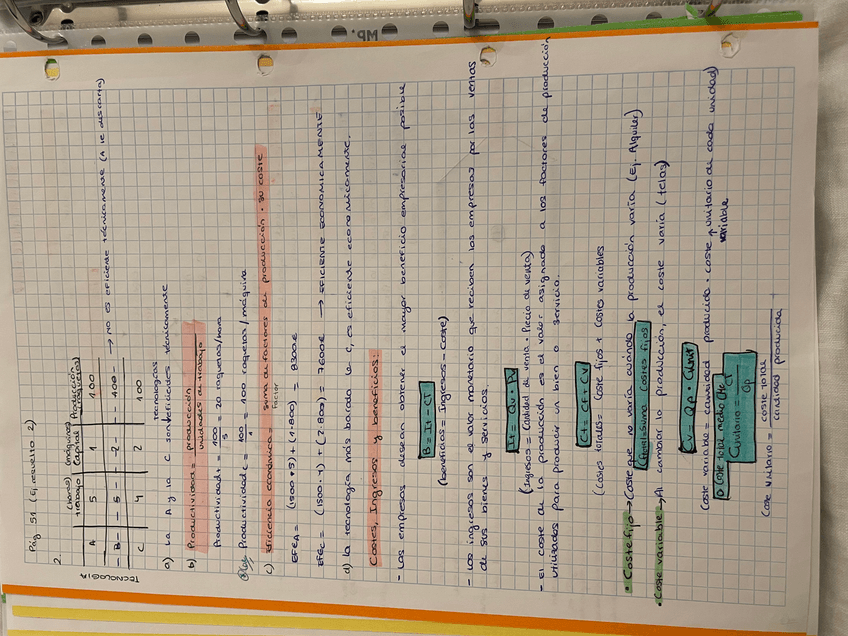 Pág 51 (Ej. resuelto 2)
2.
(horas) (máquinas) Producción
trabajo Capital (raquetas)
TECNOLOGIA
A 5 1 100
- B - - 5 - - 2 - - 100 - → NO ES EFICIENTE TÉCNICAMENTE (A le descarta)
C 4 2 100
tecnologías
a) La A y la C son eficientes técnicamente
b) Productividad = producción / unidades de trabajo
Productividad = 100 / 5 = 20 raquetas/hora
Productividad c = 100 / 1 = 100 raquetas/máquina
c) Eficiencia económica = suma de factores de producción · su coste
Factor
EFEA = (1500·5) + (1·800) = 8300€
EFEC = (1500·4) + (2·800) = 7600€ → EFICIENTE ECONOMICAMENTE
d) la tecnología más barata la C, es eficiente económicamente.
Costes, Ingresos y beneficios:
- Las empresas desean obtener el mayor beneficio empresarial posible
B = It - CT
(beneficios = Ingresos - Coste)
- Los ingresos son el valor monetario que reciben las empresas por las ventas
de sus bienes y servicios.
It = Qv · Pv
(Ingresos = Cantidad de venta · Precio de venta)
- El coste de la producción es el valor asignado a los factores de producción
utilizados para producir un bien o servicio.
Ct = CF + CV
(costes totales = Coste fijos + Costes variables
• Coste fijo → Coste que no varía cuándo la producción varía (Ej. Alquiler)
suma costes fijos
• Coste variable → Al cambiar la producción, el coste varía (telas)
Cv = Qp · CVunit
(coste variable = cantidad producida · coste unitario de cada unidad)
variable
o Coste total medio
Cunitario = CT / Qp
(coste unitario = coste total / cantidad producida